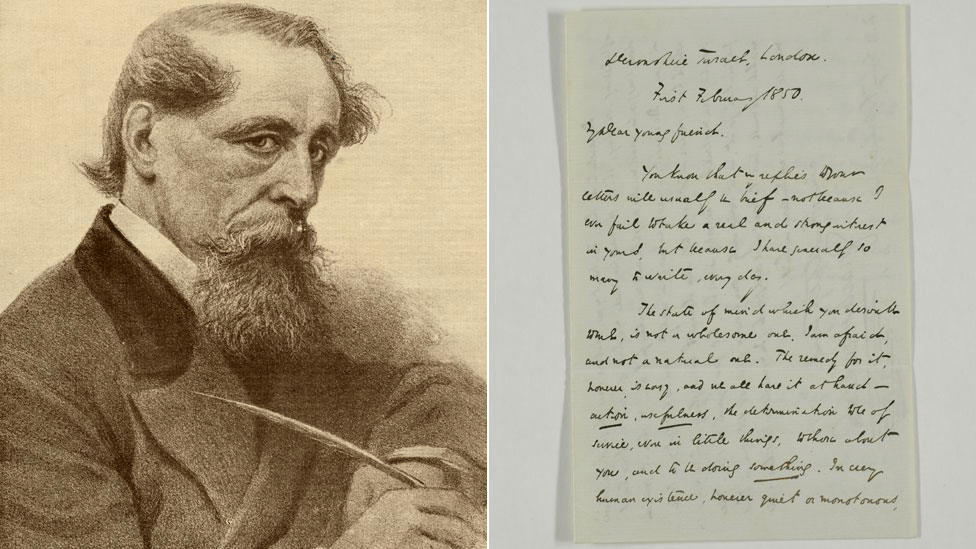 Devonshire Terrace, London.
First February 1850.
My Dear young friend.
You know that my replies to your
letters will usually be brief – not because I
ever fail to take a real and strong interest
in yours, but because I have generally so
many to write, every day.
The state of mind which you describe
to me, is not a wholesome one, I am afraid,
and not a natural one. The remedy for it,
however, is easy, and we all have it at hand –
action, usefulness, the determination to be of
service, even in little things, to those about
you, and to be doing something. In every
human existence, however quiet or monotonous,